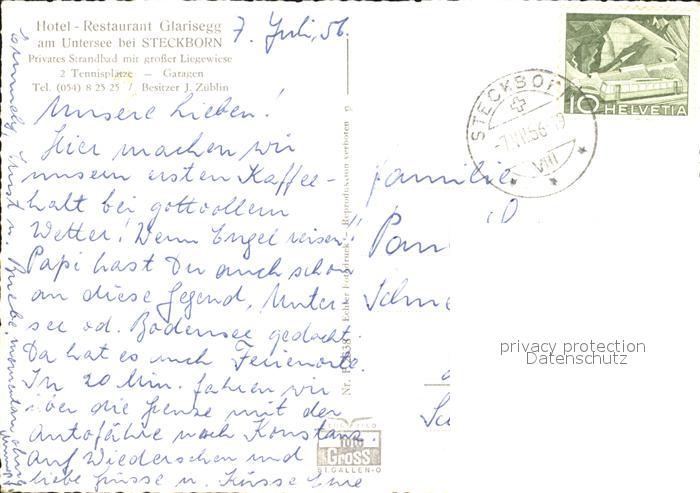 Hotel - Restaurant Glarisegg
am Untersee bei STECKBORN
Privates Strandbad mit großer Liegewiese
2 Tennisplätze — Garagen
Tel. (054) 8 25 25 / Besitzer J. Züblin
7. Juli, 56.
Unsere Lieben!
Hier machen wir
unsern ersten Kaffee-
halt bei gottvollem
Wetter! Wenn Engel reisen!!
Papi hast Du auch schon
an diese Gegend, Unter-
see od. Bodensee gedacht.
Da hat es auch Ferienorte.
In 20 Min. fahren wir
über die Grenze mit der
Autofähre nach Konstanz.
Auf Wiedersehen und
liebe Grüsse u. Küsse Eure
Echter Fotodruck - Reproduktion verboten
Nr.
FOTO
GROSS
ST. GALLEN-O
STECKBORN
-7.VII.56-
VIII
10 HELVETIA
Familie
privacy protection
Datenschutz